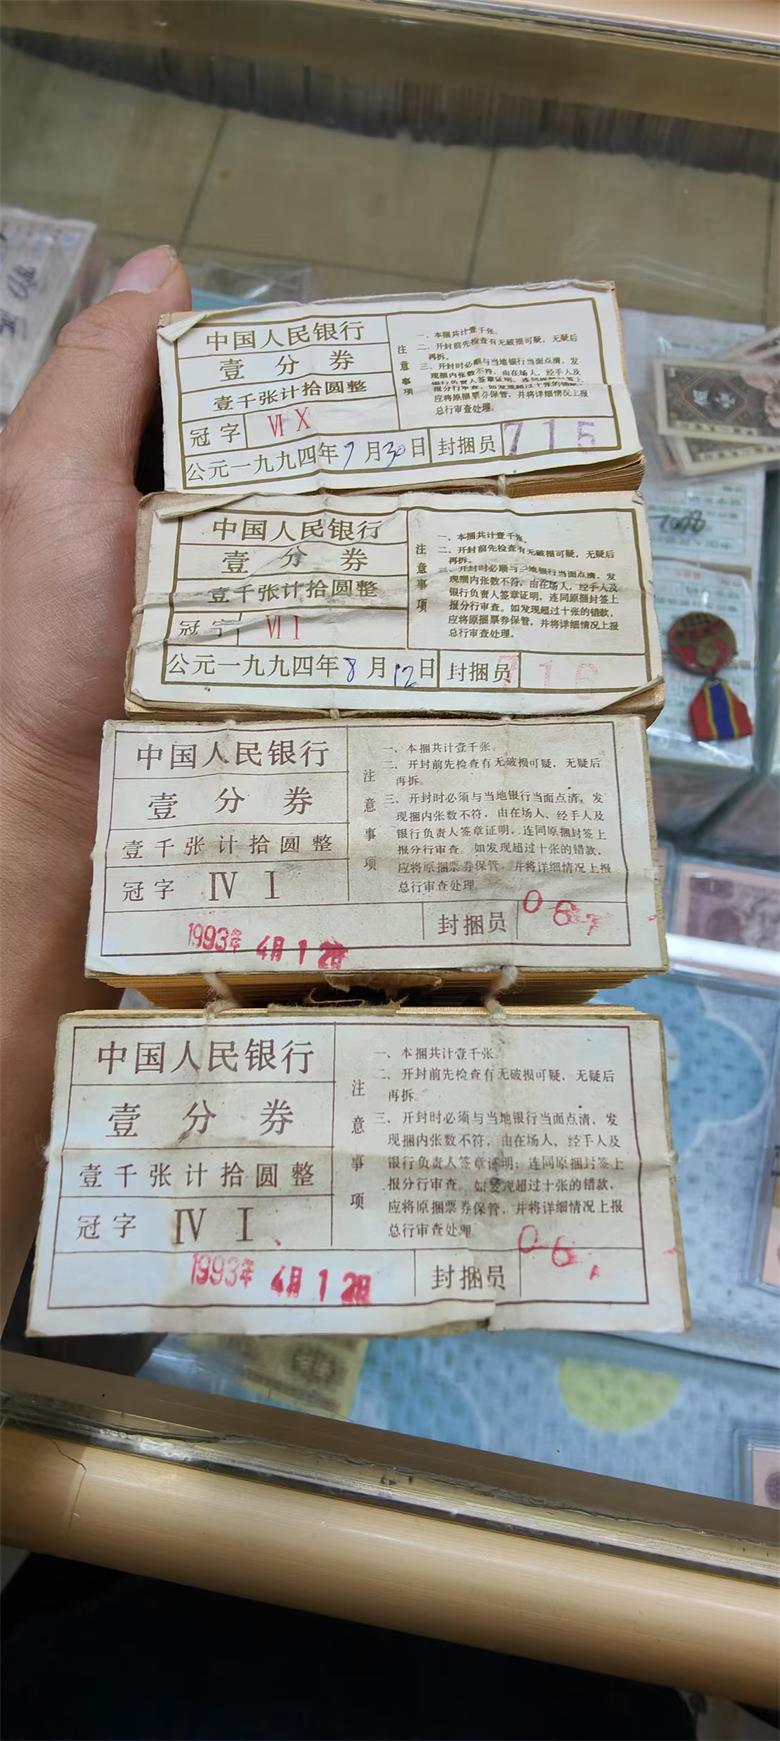 中国人民银行
壹分券
壹千张计拾圆整
冠字 Ⅵ Ⅹ
公元一九九四年7月30日 封捆员 715
注意事项
一、本捆共计壹千张。
二、开封前先检查有无破损可疑，无疑后
再拆。
三、开封时必须与当地银行当面点清，发
现捆内张数不符，由在场人，经手人及
银行负责人签章证明，连同原捆封签上
报分行审查。如发现超过十张的错款，
应将原捆票券保管，并将详细情况上报
总行审查处理。
中国人民银行
壹分券
壹千张计拾圆整
冠字 Ⅵ Ⅰ
公元一九九四年8月12日 封捆员 716
注意事项
一、本捆共计壹千张。
二、开封前先检查有无破损可疑，无疑后
再拆。
三、开封时必须与当地银行当面点清，发
现捆内张数不符，由在场人，经手人及
银行负责人签章证明，连同原捆封签上
报分行审查。如发现超过十张的错款，
应将原捆票券保管，并将详细情况上报
总行审查处理。
中国人民银行
壹分券
壹千张计拾圆整
冠字 Ⅳ Ⅰ
1993年 4月12日 封捆员 06
注意事项
一、本捆共计壹千张。
二、开封前先检查有无破损可疑，无疑后
再拆。
三、开封时必须与当地银行当面点清，发
现捆内张数不符，由在场人，经手人及
银行负责人签章证明，连同原捆封签上
报分行审查。如发现超过十张的错款，
应将原捆票券保管，并将详细情况上报
总行审查处理。
中国人民银行
壹分券
壹千张计拾圆整
冠字 Ⅳ Ⅰ
1993年 4月12日 封捆员 06
注意事项
一、本捆共计壹千张。
二、开封前先检查有无破损可疑，无疑后
再拆。
三、开封时必须与当地银行当面点清，发
现捆内张数不符，由在场人，经手人及
银行负责人签章证明，连同原捆封签上
报分行审查。如发现超过十张的错款，
应将原捆票券保管，并将详细情况上报
总行审查处理。